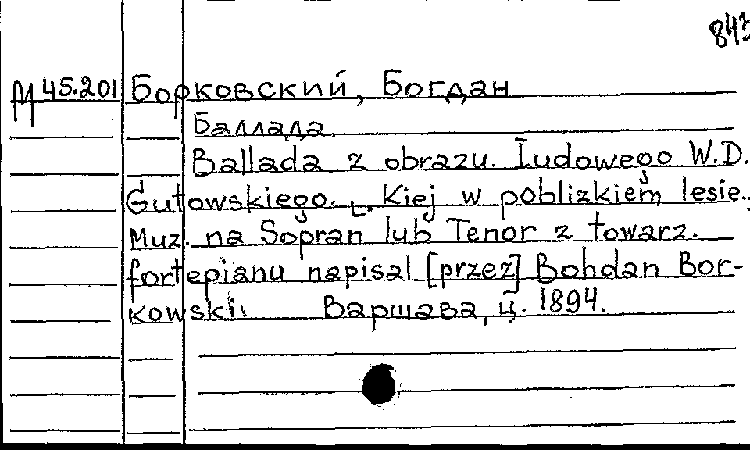 843
М 45.201 Борковский, Богдан
Баллада
Ballada z obrazu. Ludowego W.D.
Gutowskiego. L. Kiej w poblizkiem lesie.
Muz. na Sopran lub Tenor z towarz.
fortepianu napisal [przez] Bohdan Bor-
kowski. Варшава, ц. 1894.